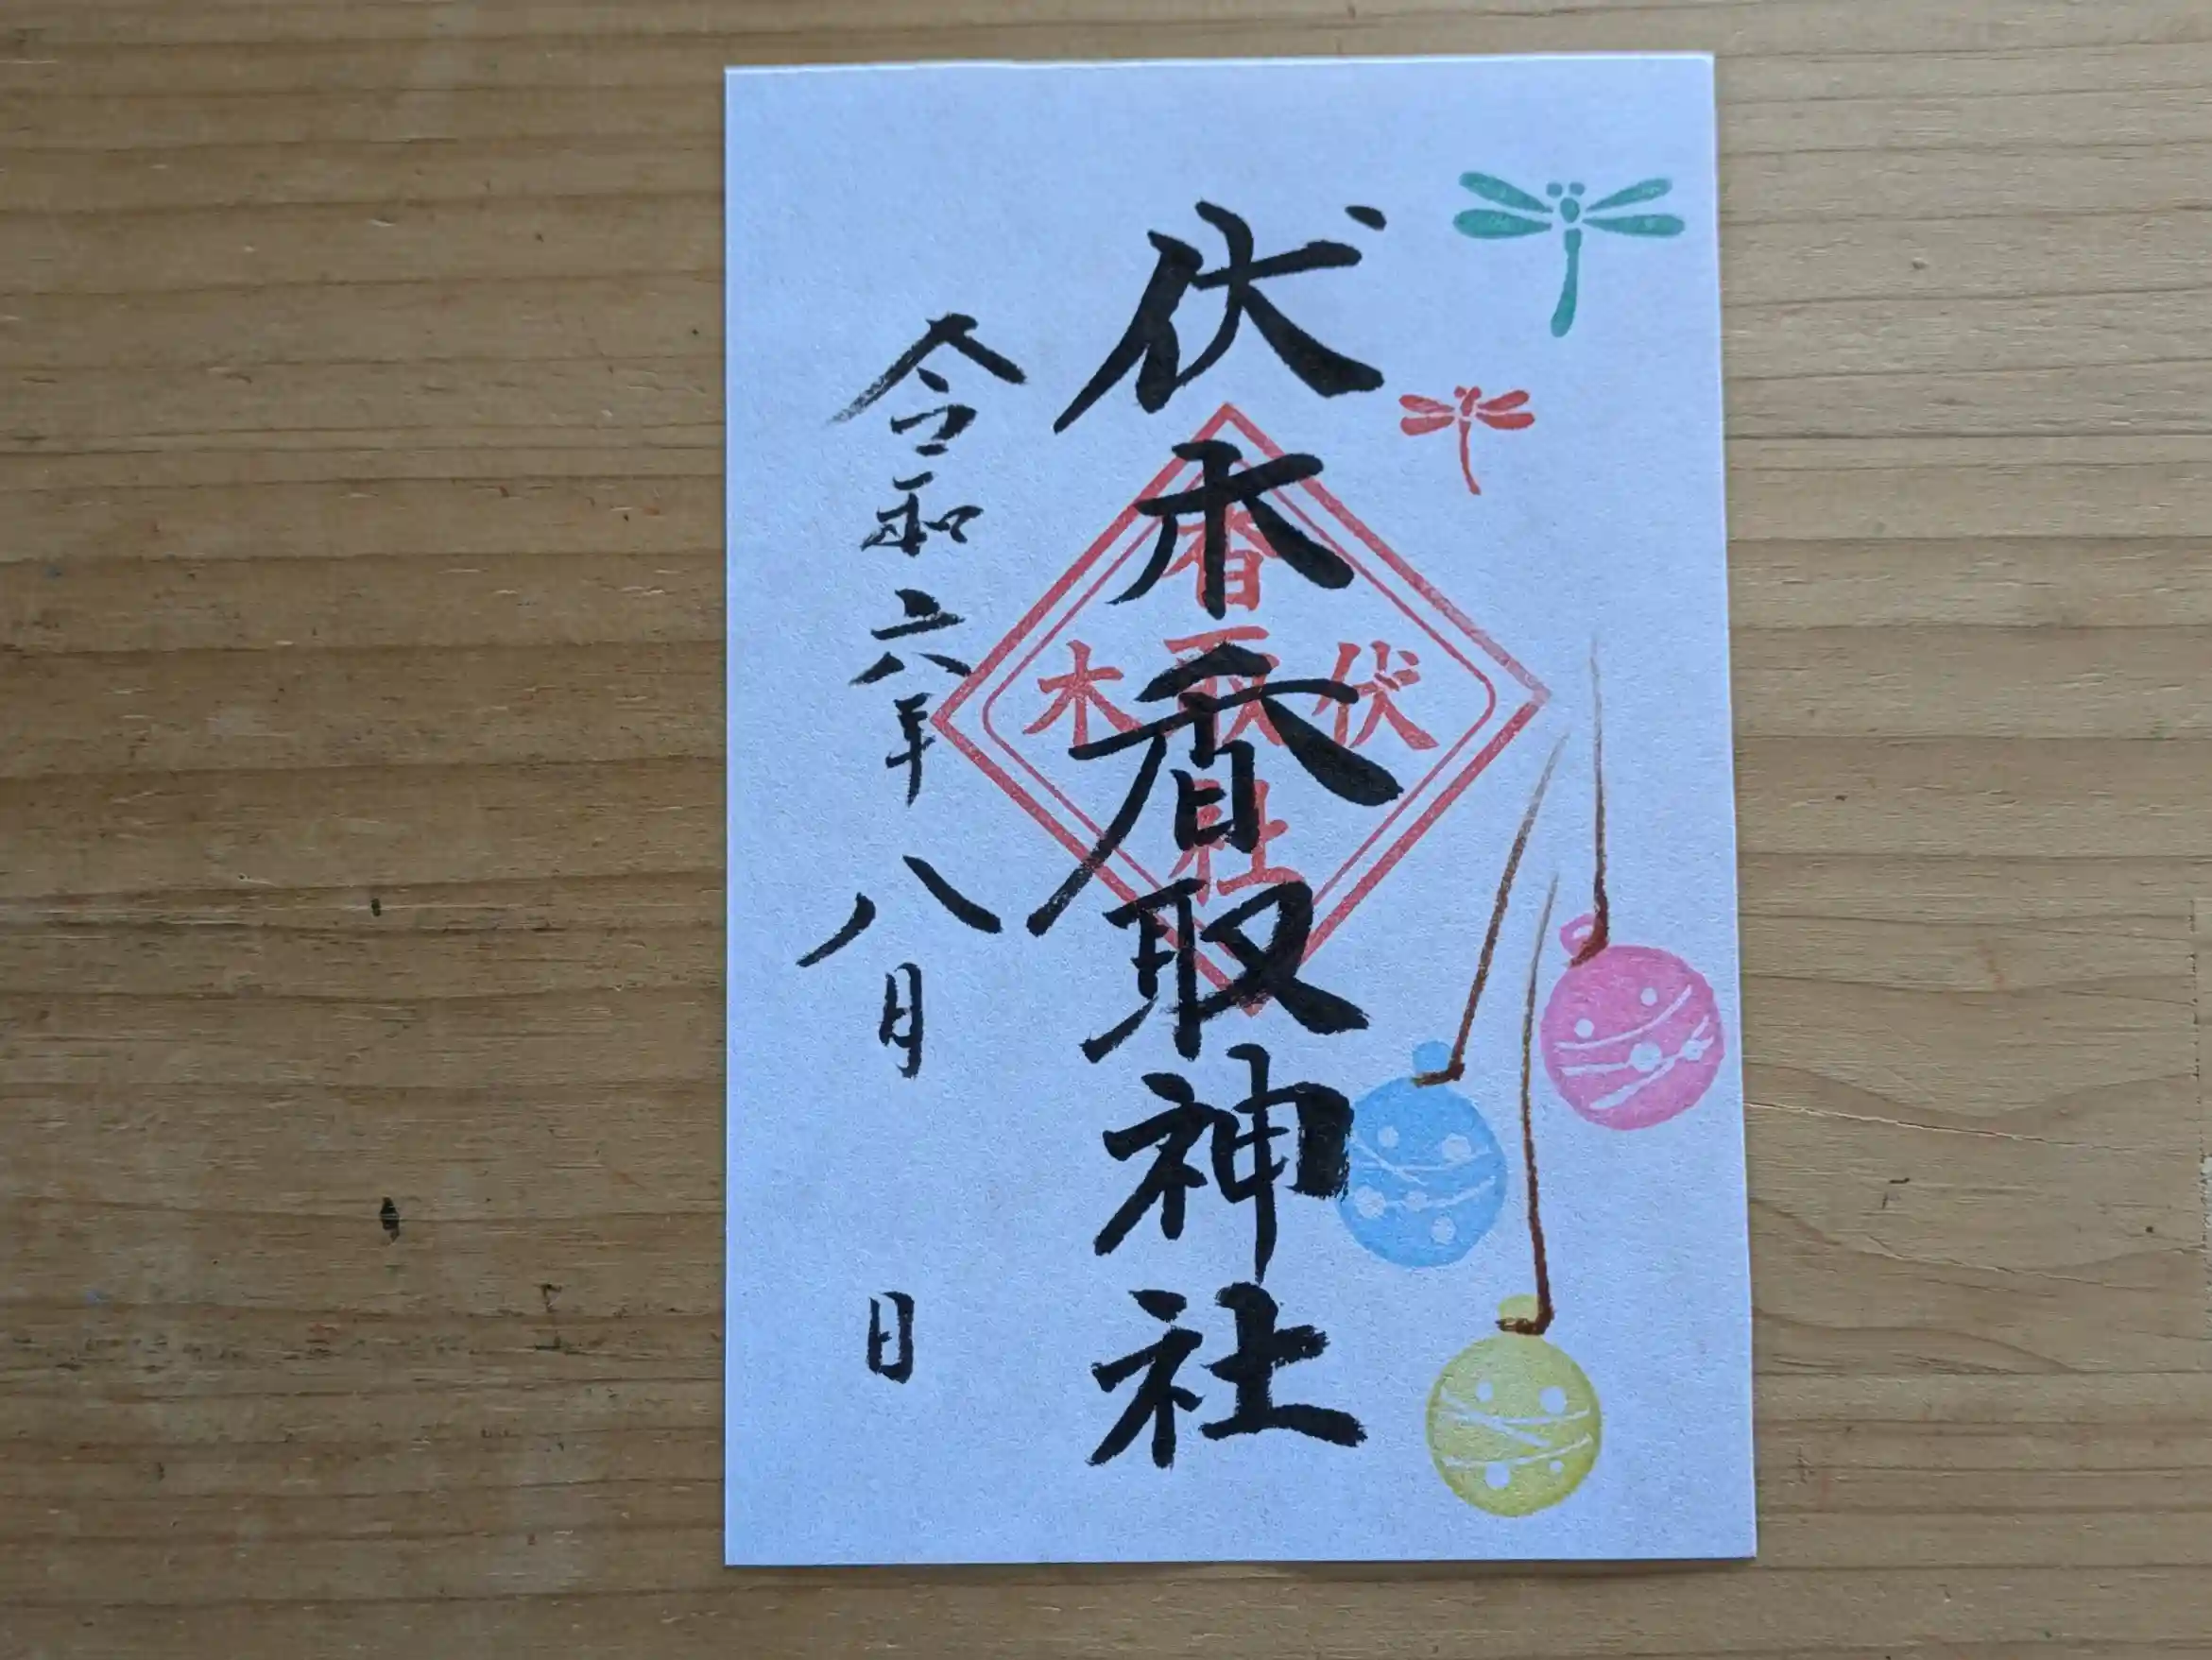 伏木香取神社
香取社
伏木
令和六年八月 日